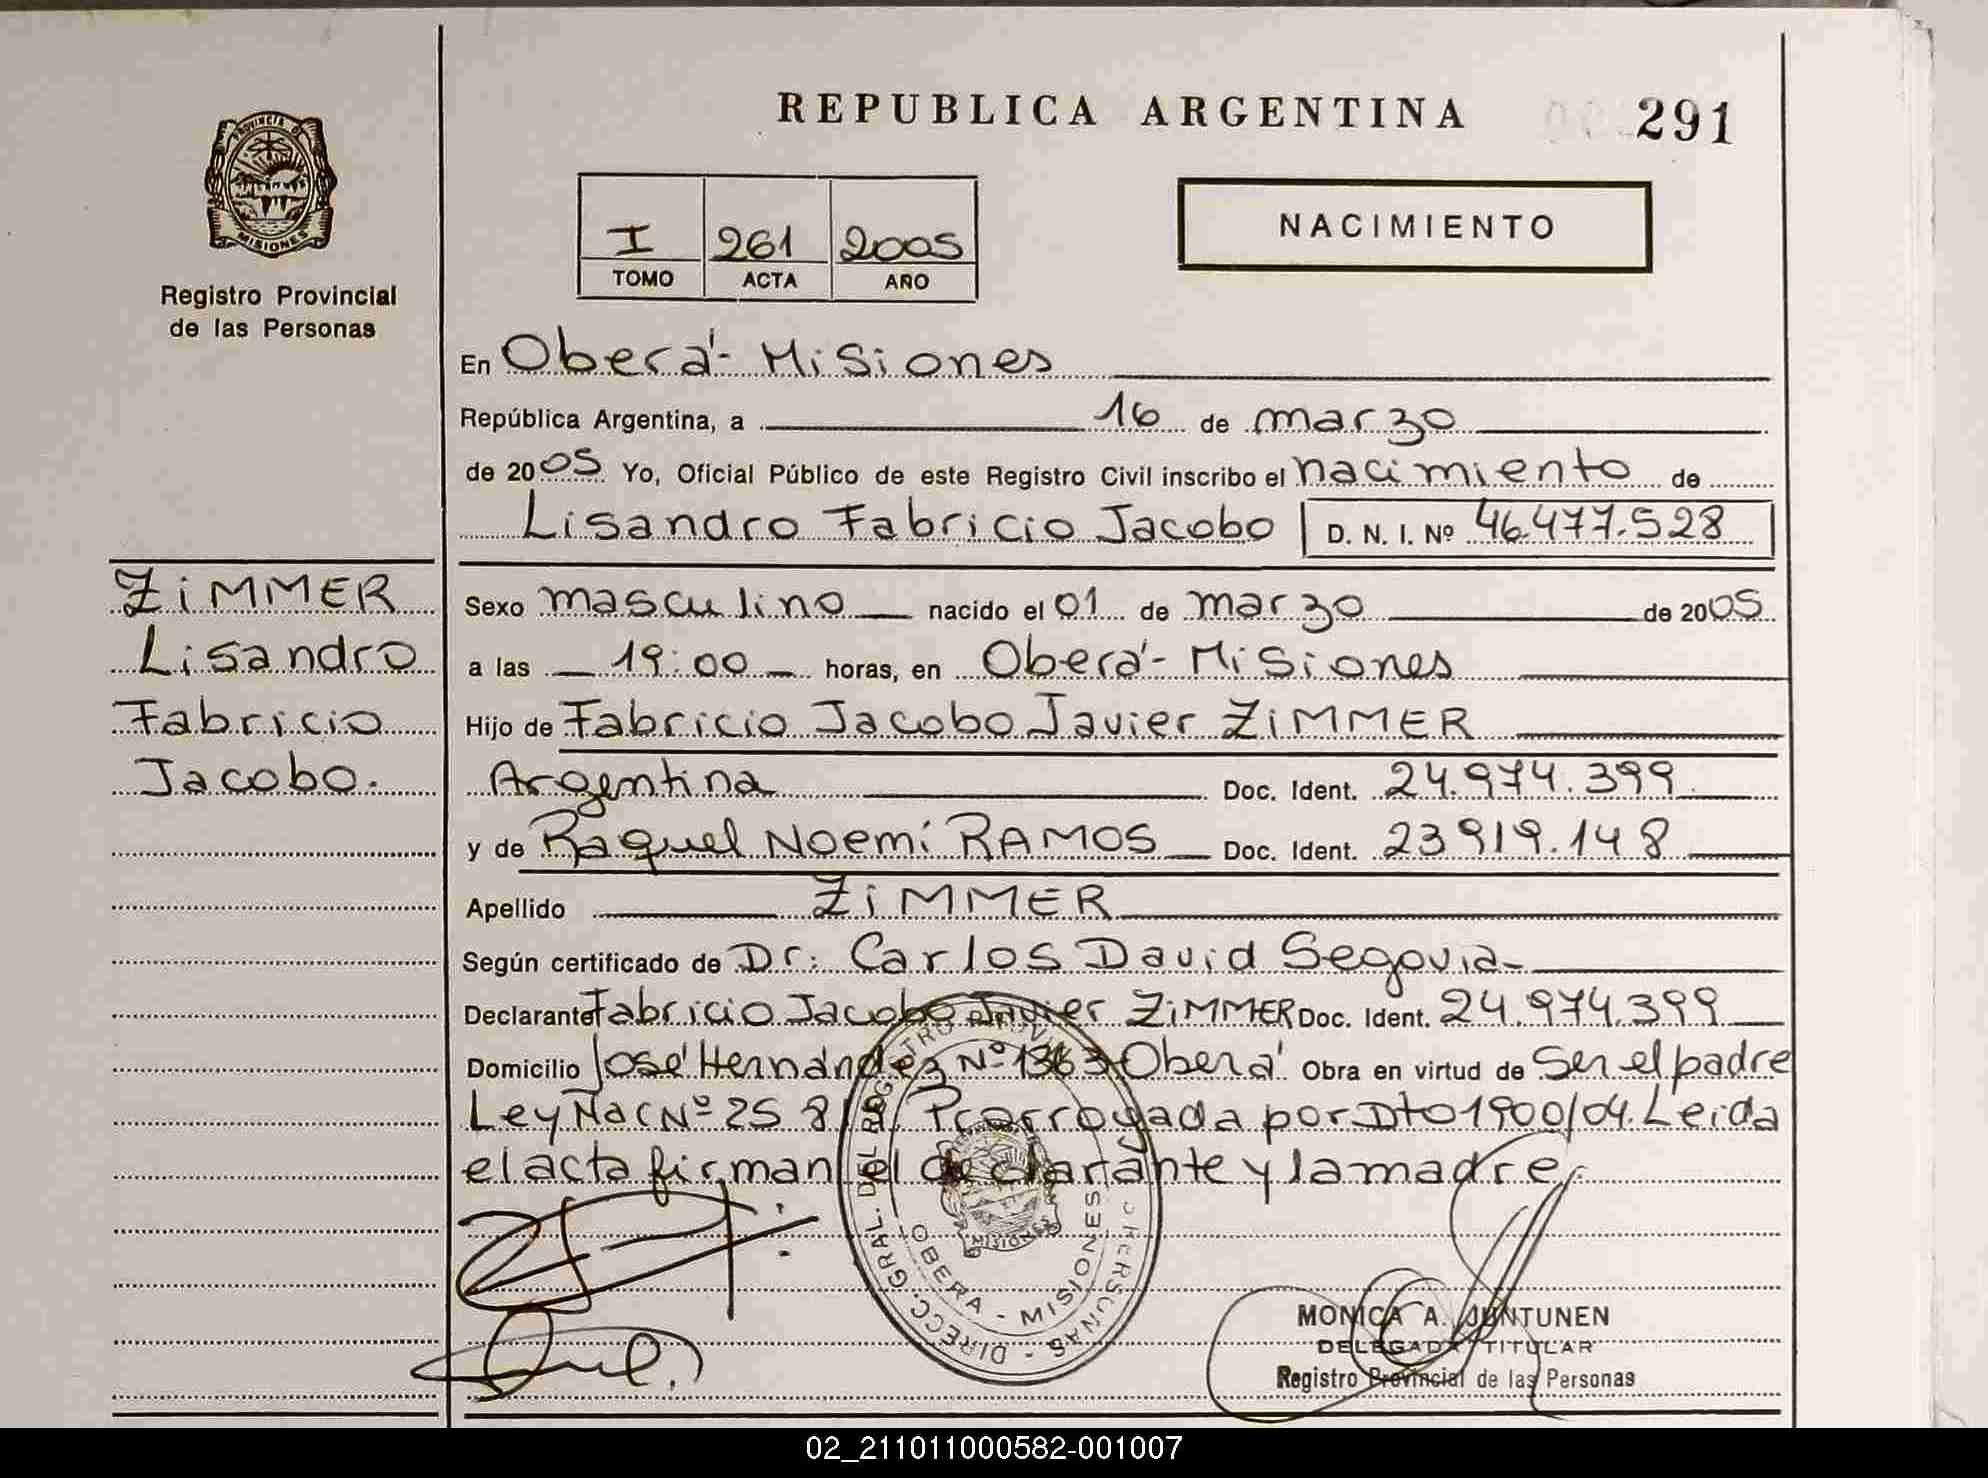 REPUBLICA ARGENTINA
291
PROVINCIA D
MISIONES
Registro Provincial
de las Personas
I 261 2005
TOMO ACTA AÑO
NACIMIENTO
En Oberá - Misiones
República Argentina, a 16 de marzo
de 2005 Yo, Oficial Público de este Registro Civil inscribo el nacimiento de
Lisandro Fabricio Jacobo D. N. I. Nº 46.477.528
ZiMMER
Lisandro
Fabricio
Jacobo.
Sexo masculino nacido el 01 de marzo de 2005
a las 19:00 horas, en Oberá - Misiones
Hijo de Fabricio Jacobo Javier ZiMMER
Argentina Doc. Ident. 24.974.399
y de Raquel Noemí RAMOS Doc. Ident. 23919.148
Apellido ZiMMER
Según certificado de Dr. Carlos David Segovia-
Declarante Fabricio Jacobo Javier ZiMMER Doc. Ident. 24.974.399
Domicilio José Hernández Nº 1363 Oberá Obra en virtud de Ser el padre
Ley Nac Nº 25 8 Prorrogada por Dto 1900/04. Leida
el acta firman el declarante y la madre.
DIRECC. GRAL. DEL REGISTRO
OBERA - MISIONES
MISIONES
MONICA A. JUNTUNEN
DELEGADA TITULAR
Registro Provincial de las Personas
02_211011000582-001007